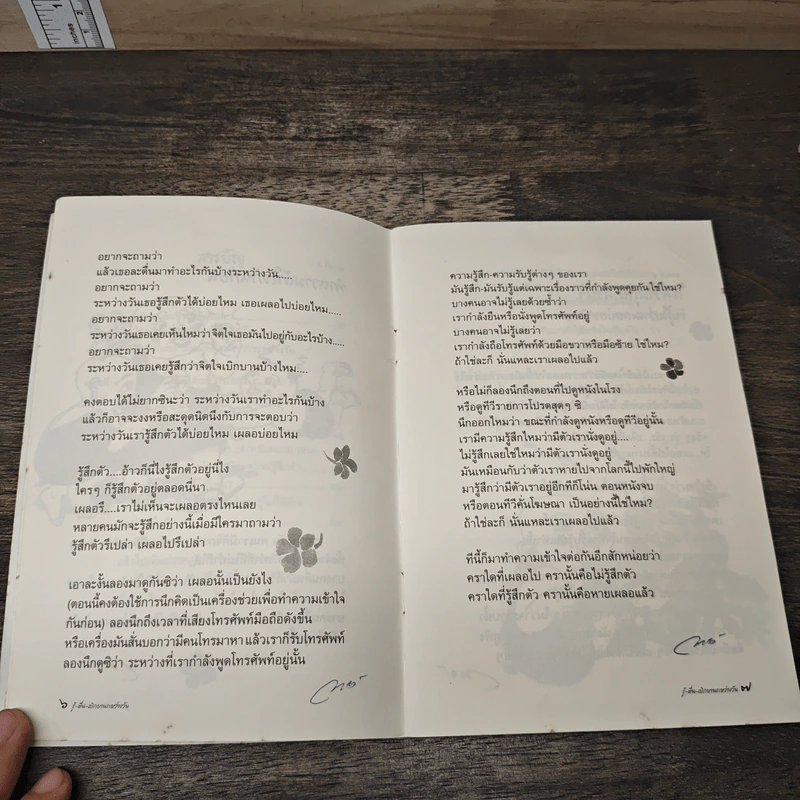 inches
1
2
1
อยากจะถามว่า
แล้วเธอล่ะตื่นมาทำอะไรกันบ้างระหว่างวัน.....
อยากจะถามว่า
ระหว่างวันเธอรู้สึกตัวได้บ่อยไหม เธอเผลอไปบ่อยไหม.....
อยากจะถามว่า
ระหว่างวันเธอเคยเห็นไหมว่าจิตใจเธอมันไปอยู่กับอะไรบ้าง.....
อยากจะถามว่า
ระหว่างวันเธอเคยรู้สึกว่าจิตใจเบิกบานบ้างไหม....
คงตอบได้ไม่ยากซินะว่า ระหว่างวันเราทำอะไรกันบ้าง
แล้วก็อาจจะงงหรือสะดุดนิดนึงกับการจะตอบว่า
ระหว่างวันเรารู้สึกตัวได้บ่อยไหม เผลอบ่อยไหม
รู้สึกตัว....อ้าวก็นี่ไงรู้สึกตัวอยู่นี่ไง
ใครๆ ก็รู้สึกตัวอยู่ตลอดนี่นา
เผลอรึ....เราไม่เห็นจะเผลอตรงไหนเลย
หลายคนมักจะรู้สึกอย่างนี้เมื่อมีใครมาถามว่า
รู้สึกตัวรึเปล่า เผลอไปรึเปล่า
เอาละงั้นลองมาดูกันซิว่า เผลอนั้นเป็นยังไง
(ตอนนี้คงต้องใช้การนึกคิดเป็นเครื่องช่วยเพื่อทำความเข้าใจ
กันก่อน) ลองนึกถึงเวลาที่เสียงโทรศัพท์มือถือดังขึ้น
หรือเครื่องมันสั่นบอกว่ามีคนโทรมาหา แล้วเราก็รับโทรศัพท์
ลองนึกดูซิว่า ระหว่างที่เรากำลังพูดโทรศัพท์อยู่นั้น
๖ รู้-ตื่น-เบิกบานระหว่างวัน
ความรู้สึก-ความรับรู้ต่างๆ ของเรา
มันรู้สึก-มันรับรู้แต่เฉพาะเรื่องราวที่กำลังพูดคุยกันใช่ไหม?
บางคนอาจไม่รู้เลยด้วยซ้ำว่า
เรากำลังยืนหรือนั่งพูดโทรศัพท์อยู่
บางคนอาจไม่รู้เลยว่า
เรากำลังถือโทรศัพท์ด้วยมือขวาหรือมือซ้าย ใช่ไหม?
ถ้าใช่ละก็ นั่นแหละเราเผลอไปแล้ว
หรือไม่ก็ลองนึกถึงตอนที่ไปดูหนังในโรง
หรือดูทีวีรายการโปรดสุดๆ ซิ
นึกออกไหมว่า ขณะที่กำลังดูหนังหรือดูทีวีอยู่นั้น
เรามีความรู้สึกไหมว่ามีตัวเรานั่งดูอยู่....
ไม่รู้สึกเลยใช่ไหมว่ามีตัวเรานั่งดูอยู่
มันเหมือนกับว่าตัวเราหายไปจากโลกนี้ไปพักใหญ่
มารู้สึกว่ามีตัวเราอยู่อีกทีก็โน่น ตอนหนังจบ
หรือตอนทีวีคั่นโฆษณา เป็นอย่างนี้ใช่ไหม?
ถ้าใช่ละก็ นั่นแหละเราเผลอไปแล้ว
ทีนี้ก็มาทำความเข้าใจต่อกันอีกสักหน่อยว่า
คราใดที่เผลอไป ครานั้นคือไม่รู้สึกตัว
คราใดที่รู้สึกตัว ครานั้นคือหายเผลอแล้ว
รู้-ตื่น-เบิกบานระหว่างวัน ๗